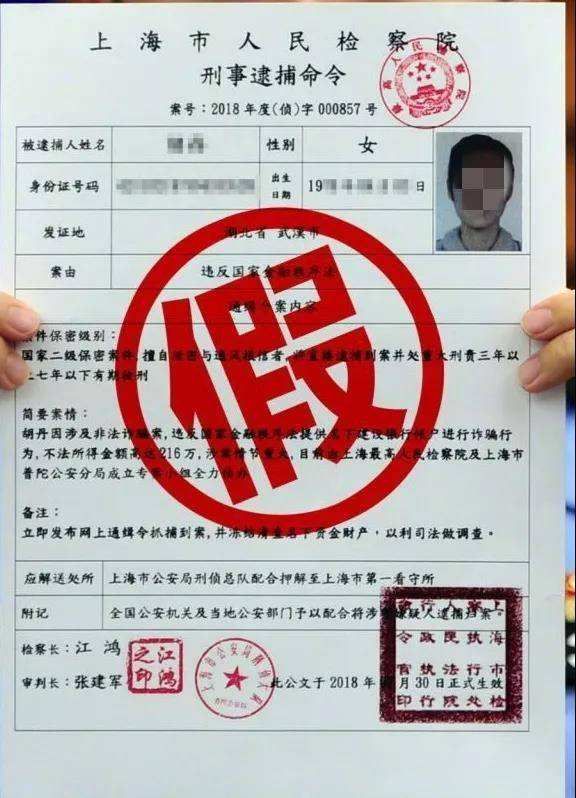 上海市人民检察院
刑事逮捕命令
案号：2018年度(侦)字 000857 号
被逮捕人姓名
性别
女
身份证号码
出生日期
19
日
发证地
湖北省 武漠市
案由
违反国家金融秩序法
通缉个案内容
案件保密级别：
国家二级保密案件,擅自泄密与通风报信者,将直接逮捕到案并处重大刑责三年以
上七年以下有期徒刑
简要案情：
胡丹因涉及非法诈骗案,违反国家金融秩序法提供名下建设银行帐户进行诈骗行
为,不法所得金额高达216万,涉案情节重大,目前由上海最高人民检察院及上海市
普陀公安分局成立专案小组全力侦办
备注：
立即发布网上通缉令抓捕到案,并冻结清查名下资金财产,以利司法做调查。
应解送处所
上海市公安局刑侦总队配合押解至上海市第一看守所
附记
全国公安机关及当地公安部门予以配合将涉案嫌疑人逮捕归案。
检察长：江 鸿
江鸿之印
审判长：张建军
此公文于2018年
月30日正式生效
假